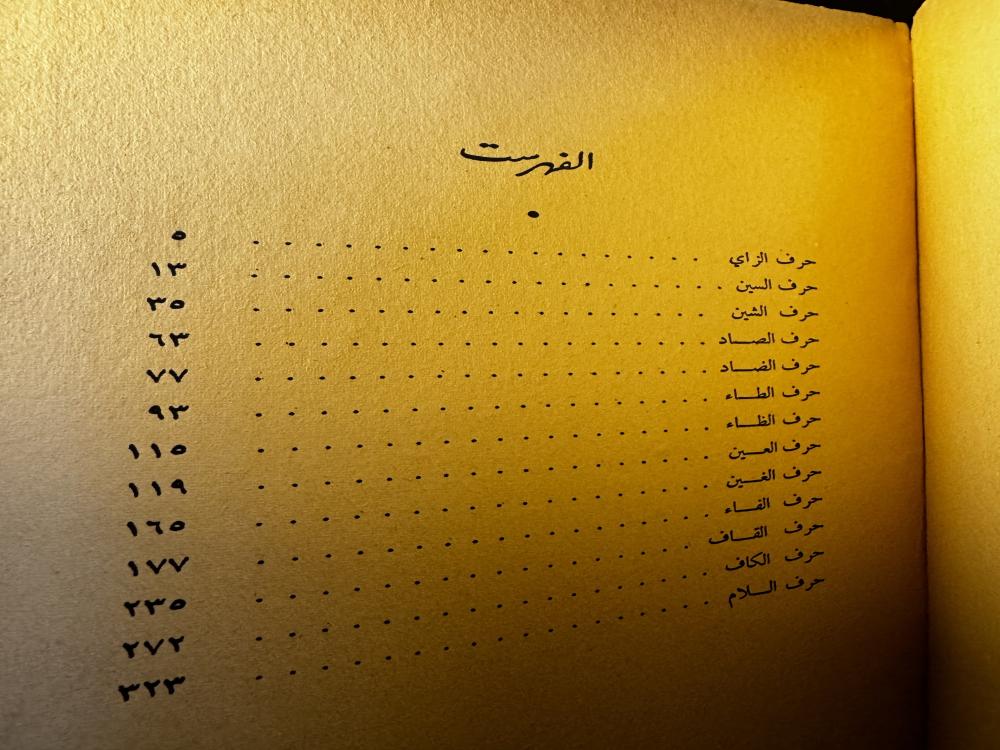 الفهرست
حرف الزاي . . . . . . . . . . . . . . . ٥
حرف السين . . . . . . . . . . . . . . . . ١٣
حرف الشين . . . . . . . . . . . . . . . ٣٥
حرف الصـاد . . . . . . . . . . . . . . . ٦٣
حرف الضـاد . . . . . . . . . . . . . . . ٧٧
حرف الطـاء . . . . . . . . . . . . . . . ٩٣
حرف الظـاء . . . . . . . . . . . . . . . ١١٥
حرف العـين . . . . . . . . . . . . . . . ١١٩
حرف الغـين . . . . . . . . . . . . . . . ١٦٥
حرف الفـاء . . . . . . . . . . . . . . . ١٧٧
حرف القـاف . . . . . . . . . . . . . . ٢٣٥
حرف الكاف . . . . . . . . . . . . . . . ٢٧٢
حرف الـلام . . . . . . . . . . . . . . . ٣٢٣